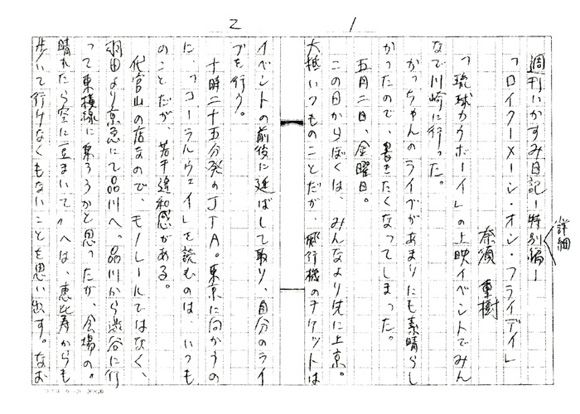 1
週刊いかすみ日記ー特別編ー
「ロイクーメーン・オン・フライデイ」
奈須重樹
「琉球カウボーイ」の上映イベントでみん
なで川崎に行った。
かっちゃんのライブがあまりにも素晴らし
かったので、書きたくなってしまった。
五月二日、金曜日。
この日からぼくは、みんなより先に上京。
大抵いつものことだが、飛行機のチケットは
2
イベントの前後に延ばして取り、自分のライ
ブを行う。
十時二十五分発のJTA。東京に向かうの
に、「コーラルウェイ」を読むのは、いつも
のことだが、若干違和感がある。
代官山の店なので、モノレールではなく、
羽田より京急にて品川へ。品川から渋谷に行
って東横線に乗ろうかと思ったが、会場の「
晴れたら空に豆まいて」へは、恵比寿からも
歩いて行けなくもないことを思い出す。なお
詳細